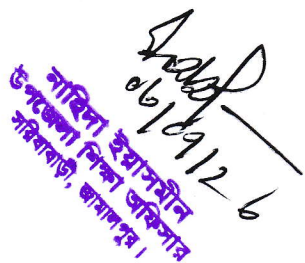 ০৬/০৭/২৬
নাহিদা ইয়াসমীন
উপজেলা শিক্ষা অফিসার
সরিষাবাড়ী, জামালপুর।